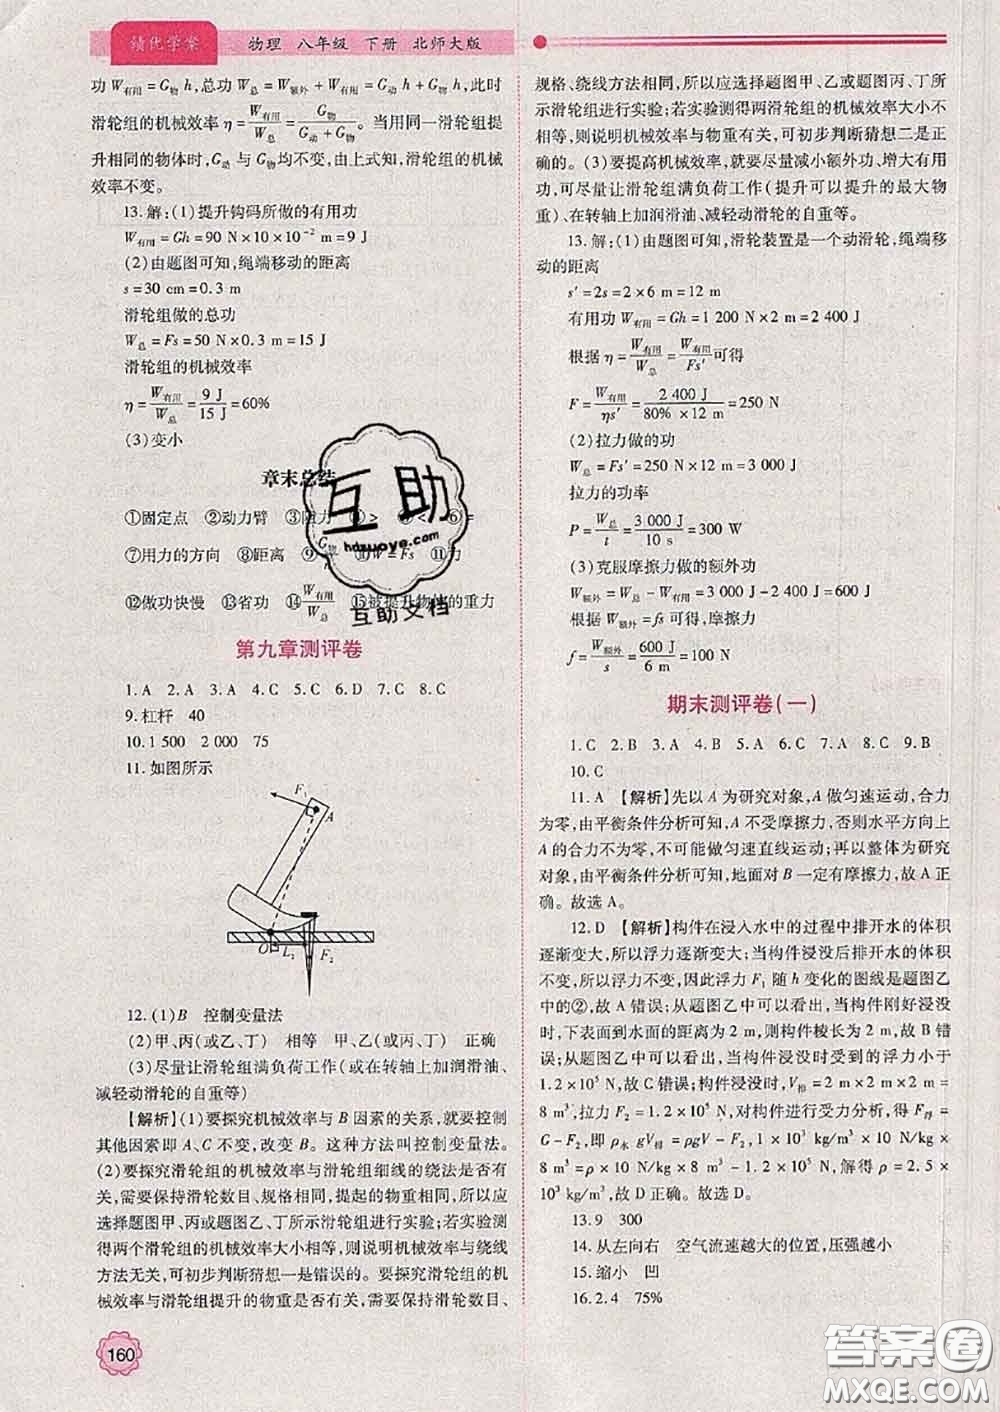 绩优学案
物理 八年级 下册 北师大版
功W有用=G物 h,总功W总=W额外+W有用=G动 h+G物 h,此时
滑轮组的机械效率 η=W有用/W总=G物/(G动+G物)。当用同一滑轮组提
升相同的物体时,G动 与G物均不变,由上式知,滑轮组的机械
效率不变。
13.解:(1)提升钩码所做的有用功
W有用=Gh=90 N×10×10⁻² m=9 J
(2)由题图可知,绳端移动的距离
s=30 cm=0.3 m
滑轮组做的总功
W总=Fs=50 N×0.3 m=15 J
滑轮组的机械效率
η=W有用/W总=9 J/15 J=60%
(3)变小
章末总结
①固定点 ②动力臂 ③阻力 > < ⑥=
⑦用力的方向 ⑧距离 ⑨ G物 ⑩W=Fs ⑪力
⑫做功快慢 ⑬省功 ⑭W有用/W总 ⑮被提升物体的重力
第九章测评卷
1.A 2.A 3.A 4.C 5.C 6.D 7.C 8.C
9.杠杆 40
10.1 500 2 000 75
11.如图所示
F₁
A
O L₂ F₂
12.(1)B 控制变量法
(2)甲、丙(或乙、丁) 相等 甲、乙(或丙、丁) 正确
(3)尽量让滑轮组满负荷工作(或在转轴上加润滑油、
减轻动滑轮的自重等)
【解析】(1)要探究机械效率与B因素的关系,就要控制
其他因素即A、C不变,改变B。这种方法叫控制变量法。
(2)要探究滑轮组的机械效率与滑轮组细线的绕法是否有
关,需要保持滑轮数目、规格相同,提起的物重相同,所以应
选择题图甲、丙或题图乙、丁所示滑轮组进行实验;若实验测
得两个滑轮组的机械效率大小相等,则说明机械效率与绕线
方法无关,可初步判断猜想一是错误的。要探究滑轮组的机
械效率与滑轮组提升的物重是否有关,需要保持滑轮数目、
160
规格、绕线方法相同,所以应选择题图甲、乙或题图丙、丁所
示滑轮组进行实验;若实验测得两滑轮组的机械效率大小不
相等,则说明机械效率与物重有关,可初步判断猜想二是正
确的。(3)要提高机械效率,就要尽量减小额外功、增大有用
功,可尽量让滑轮组满负荷工作(提升可以提升的最大物
重)、在转轴上加润滑油、减轻动滑轮的自重等。
13.解:(1)由题图可知,滑轮装置是一个动滑轮,绳端移
动的距离
s′=2s=2×6 m=12 m
有用功W有用=Gh=1 200 N×2 m=2 400 J
根据 η=W有用/W总=W有用/Fs′可得
F=W有用/ηs′=2 400 J/(80%×12 m)=250 N
(2)拉力做的功
W总=Fs′=250 N×12 m=3 000 J
拉力的功率
P=W总/t=3 000 J/10 s=300 W
(3)克服摩擦力做的额外功
W额外=W总-W有用=3 000 J-2 400 J=600 J
根据W额外=fs可得,摩擦力
f=W额外/s=600 J/6 m=100 N
期末测评卷(一)
1.C 2.B 3.A 4.B 5.A 6.C 7.A 8.C 9.B
10.C
11.A 【解析】先以A为研究对象,A做匀速运动,合力
为零,由平衡条件分析可知,A不受摩擦力,否则水平方向上
A的合力不为零,不可能做匀速直线运动;再以整体为研究
对象,由平衡条件分析可知,地面对B一定有摩擦力,故A正
确。故选A。
12.D 【解析】构件在浸入水中的过程中排开水的体积
逐渐变大,所以浮力逐渐变大;当构件浸没后排开水的体积
不变,所以浮力不变,因此浮力F₁随h变化的图线是题图乙
中的②,故A错误;从题图乙中可以看出,当构件刚好浸没
时,下表面到水面的距离为2 m,则构件棱长为2 m,故B错
误;从题图乙中可以看出,当构件浸没时受到的浮力小于
1.2×10⁵ N,故C错误;构件浸没时,V排=2 m×2 m×2 m=
8 m³,拉力F₂=1.2×10⁵ N,对构件进行受力分析,得F浮=
G-F₂,即ρ水 gV排=ρgV-F₂,1×10³ kg/m³×10 N/kg×
8 m³=ρ×10 N/kg×8 m³-1.2×10⁵ N,解得ρ=2.5×
10³ kg/m³,故D正确。故选D。
13.9 300
14.从左向右 空气流速越大的位置,压强越小
15.缩小 凹
16.2.4 75%
互助
hdzuoye.com
互助文档
答案圈
MXQE.COM